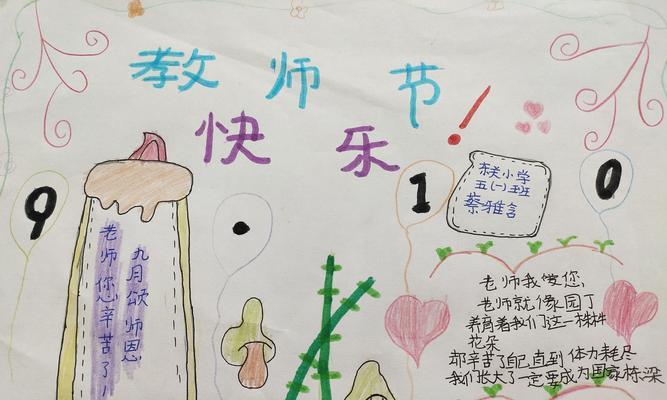 教师节
快乐!
9.10
东关小学
五(一)班
蔡雅含
九月颂师恩
老师您辛苦了!
老师我爱您,
老师就像园丁
养育着我们这一株株
花朵
却辛苦了自己直到体力耗尽
我们长大了一定要成为国家栋梁